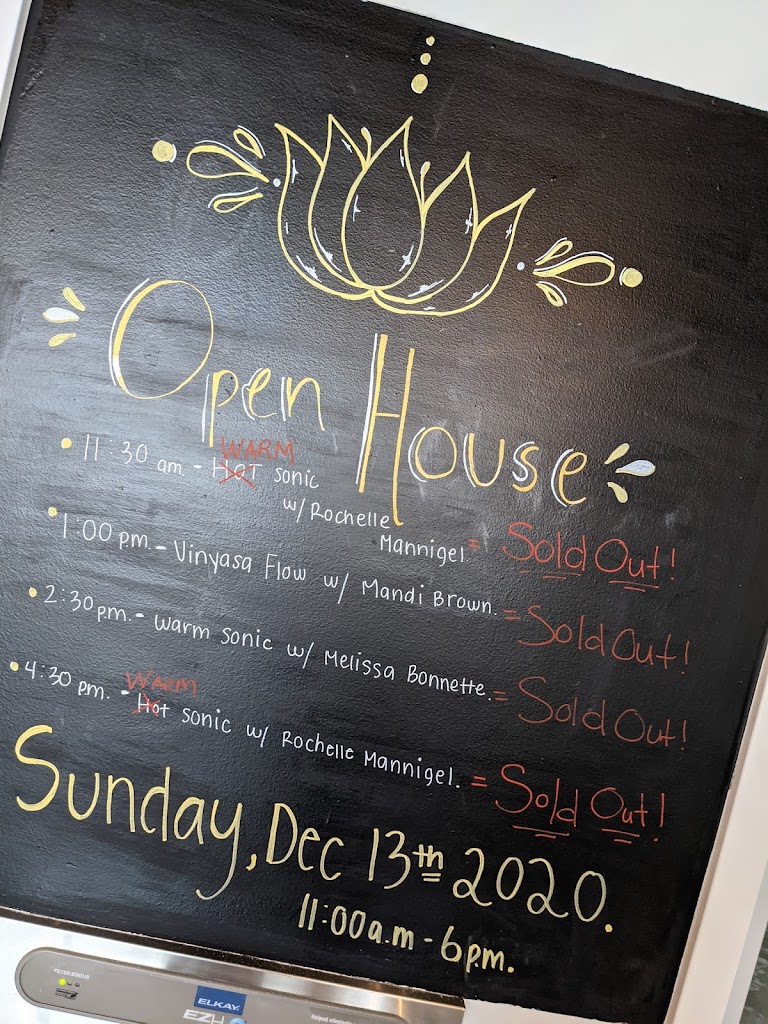 Open House
WARM
11:30 am - HOT sonic
w/ Rochelle
Mannigel. = Sold Out!
1:00 p.m. - Vinyasa Flow w/ Mandi Brown. = Sold Out!
2:30 p.m. - warm sonic w/ Melissa Bonnette. = Sold Out!
WARM
4:30 pm. - Hot sonic w/ Rochelle Mannigel. = Sold Out!
Sunday, Dec 13th 2020.
11:00 a.m - 6 p.m.
FILTER STATUS
ELKAY
EZH